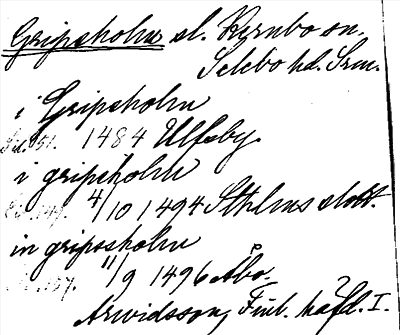 Gripsholm sl. Kyrnbo sn.
Selebo hd. Srm.
i Gripsholm
1484 Ulfsby.
i gripsholm
4/10 1494 Sthlms slott.
in gripssholm
11/9 1496 Åbo.
Arwidsson, Finl. häfd. I.